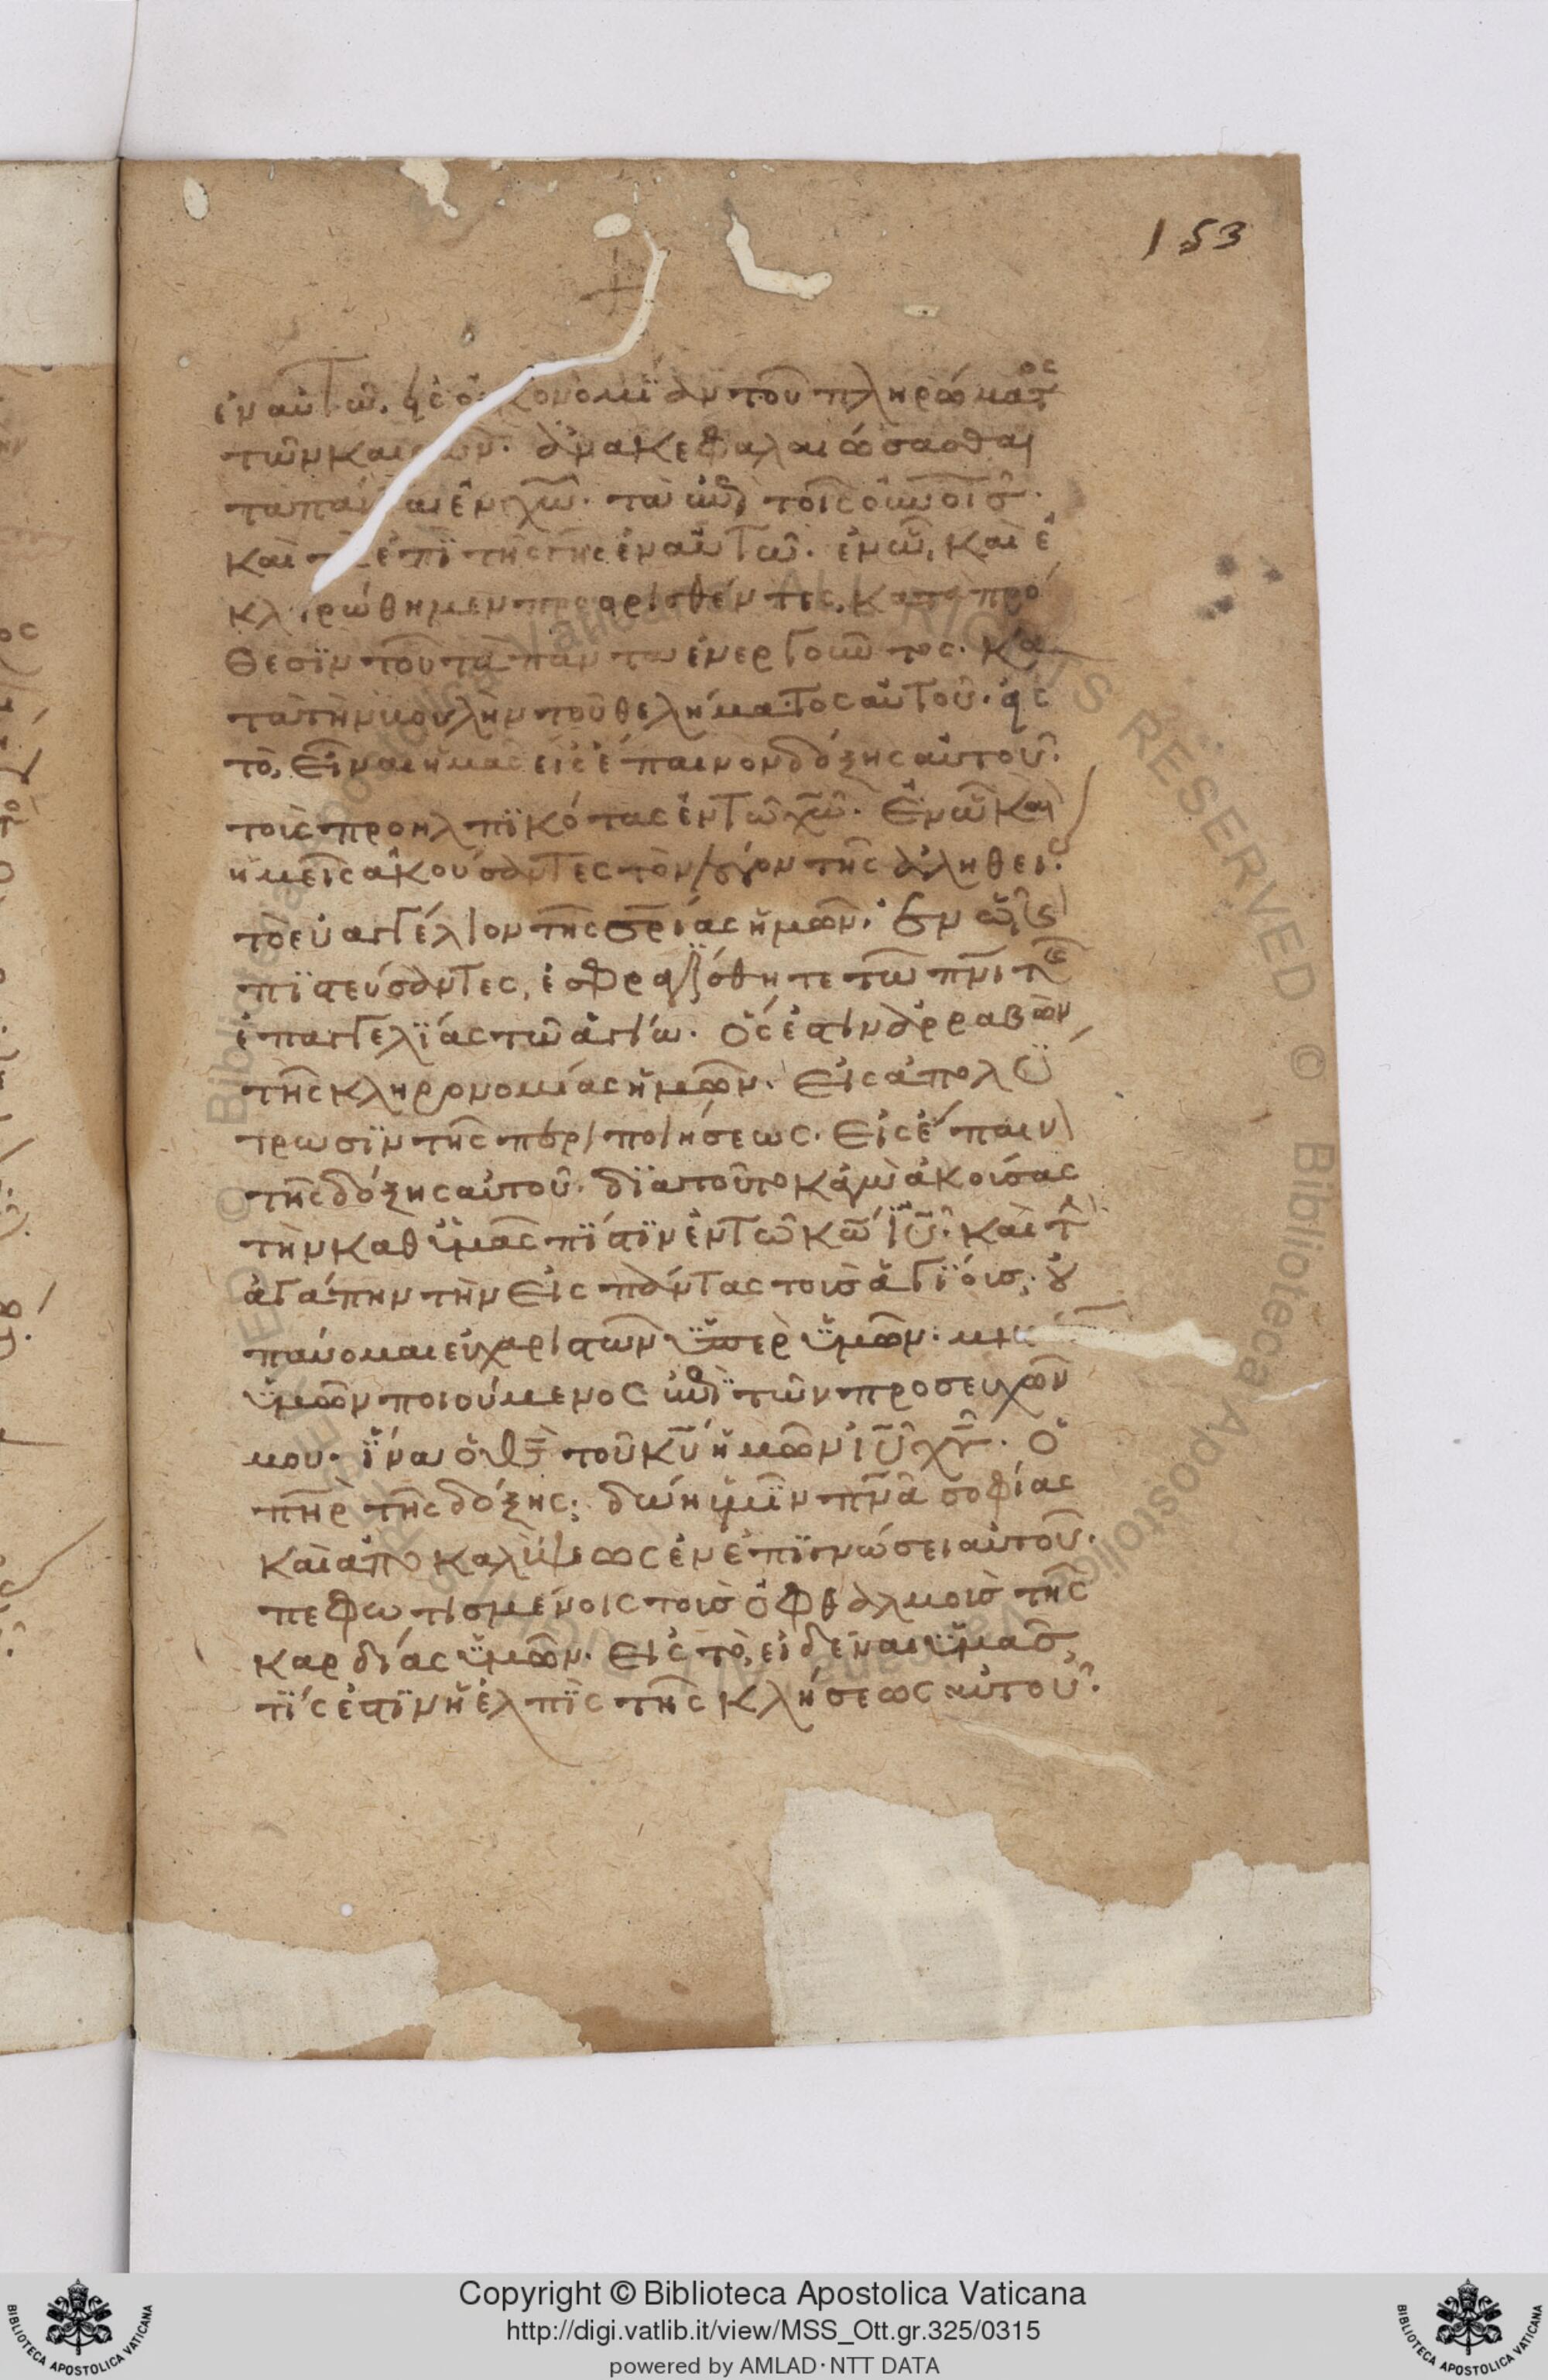 153
ἐν αὐτῶ, εἰς οἰκονομΐαν τοῦ πληρώματος
τῶν καιρῶν· ἀνακεφαλαιώσασθαι
τὰ πάντα ἐν χῶ· τὰ ἐπὶ τοῖς οὐνοισ·
καὶ τὰ ἐπῒ τῆς γῆς ἐν αὐτῶ· ἐν ὧ, καὶ ἐ
κληρώθημεν προορισθέντες, κατὰ πρό
θεσϊν τοῦ τὰ πάντα ἐνεργοῦντος· κα
τὰ τὴν βουλὴν τοῦ θελήματος αὐτοῦ· εἰς
τὸ, εἶναι ἡμᾶς εἰς ἔπαινον δόξης αὐτοῦ·
τοὶς προηλπϊκότας ἐν τῶ χῶ· Ἐν ὧ καὶ
ἡμεῖς ἀκούσαντες τὸν λόγον τῆς ἀληθείας
τὸ εὐαγγέλιον τῆς σρίας ἡμῶν· ἐν ὧ καὶ
πϊστεύσαντες, ἐσφραγΐσθητε τῶ πνι τῆς
ἐπαγγελΐας τῶ ἁγίω· ὅς ἐστιν ἀρραβὼν
τῆς κληρονομίας ἡμῶν· Εἰς ἀπολὺ
τρωσϊν τῆς περιποιήσεως· Εἰς ἔπαινον
τῆς δόξης αὐτοῦ· δϊατοῦτο κἀγὼ ἀκοισας
τὴν καθ ὑμᾶς πΐστϊν ἐν τῶ κῶ ἰῦ· καὶ τὴν
ἀγάπην τὴν εἰς πάντας τοὶσ ἁγΐοισ, οὐ
παύομαι εὐχαριστῶν ὑπερ ὑμῶν· μν
ὑμῶν ποιούμενος ἐπῒ τῶν προσευχῶν
μου· ἵνα ὁ θς τοῦ κυ ἡμῶν ἰῦ χῦ· Ὁ
πηρ τῆς δόξης· δώη ὑμῖν πνα σοφίας
καὶ ἀποκαλύψεως ἐν ἐπϊγνώσει αὐτοῦ·
πεφωτισμένοις τοὶσ ὀφθαλμοισ τῆς
καρδίας ὑμῶν· εἰς τὸ, εἰδέναι ὑμᾶσ,
τΐς ἐστϊν ἡ ἐλπῒς τῆς κλήσεως αὐτοῦ·
Copyright © Biblioteca Apostolica Vaticana
http://digi.vatlib.it/view/MSS_Ott.gr.325/0315
powered by AMLAD·NTT DATA